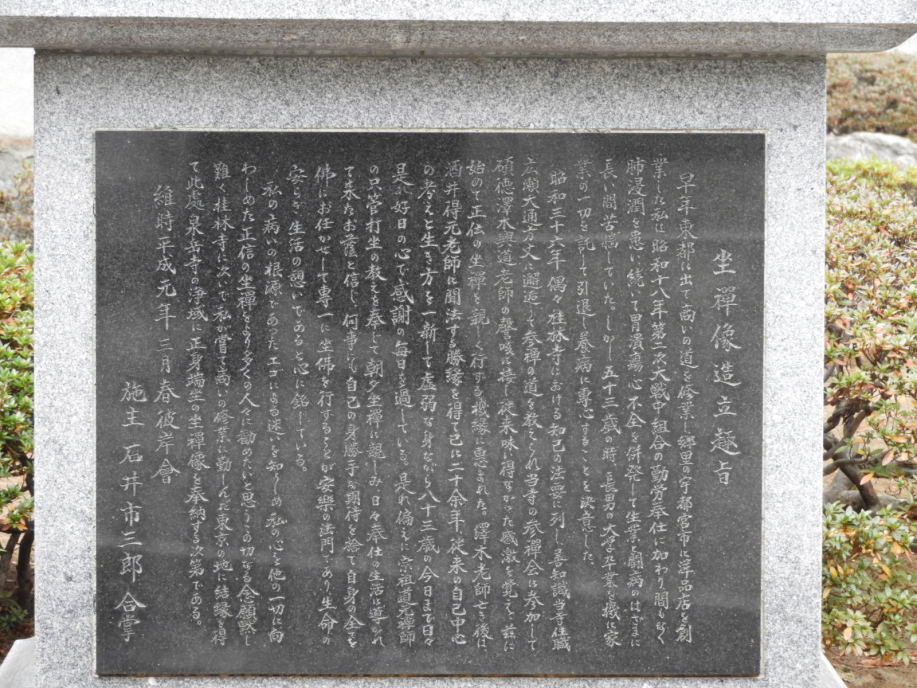 坐禪像造立趣旨
早年東都に出て商いの道を修業し郷里の宇都宮市に洋品店を創
業した私は昭和十八年第二次大戦中組合の勤労奉仕に加わり間もなく
肺浸潤を患い続いて胃潰瘍心不全を併発して生業と闘病のはざまに
長い間苦悩していた。しかし五十三歳の時、長男の大学卒業を機に家
業の一切を託して引退し養病に専心することを決意した。
昭和三十六年偶々桂林寺における知己の法要に列し善知識当寺住職
広瀬大通方丈に邂逅して参禅の道を教えくれ当寺の参禅会に参加して
碩徳澤木興道老師の謦咳に接し従来味い得なかった感激を覚えて茲に
始めて正伝の坐禅を親しく行ずる機縁に恵まれた。澤木老師亡き後は
酒井得元老師に聞法する勝縁を得て已に二十余年従来の自己中心
の考えと生き方を一新して虚弱な身ながら八十三歳の今日まで日々
是れ好日の心で感謝の毎日を過している。是れ偏えに宗祖道元禅師
の只管打坐の教えを奉じて朝夕坐禅に親しみ日々奉仕の生活に導かれ
て来たお蔭と信じ、何事にも自己の身勝手な期待を捨てて自身の全てを
佛にお任かせして専一に坐佛を行ずることが安樂の法門であり生命の
安らぎ生活の憩いであると心に銘している。
私の病いの根源であったエゴによる迷いを知らしめ私の心を他の一切に向
わしめた正信の坐禅をより多くの人々に勧めたいと思うの切なる念願黙し
難く桂林寺に次いで私が嘗て商いの修業に勤しんだ東京の地に結縁を得
て此處泉岳寺の浄域に正身端坐の坐禅像を奉納する次第である。
維時平成元年三月春彼岸會
施主 石井市三郎 合掌